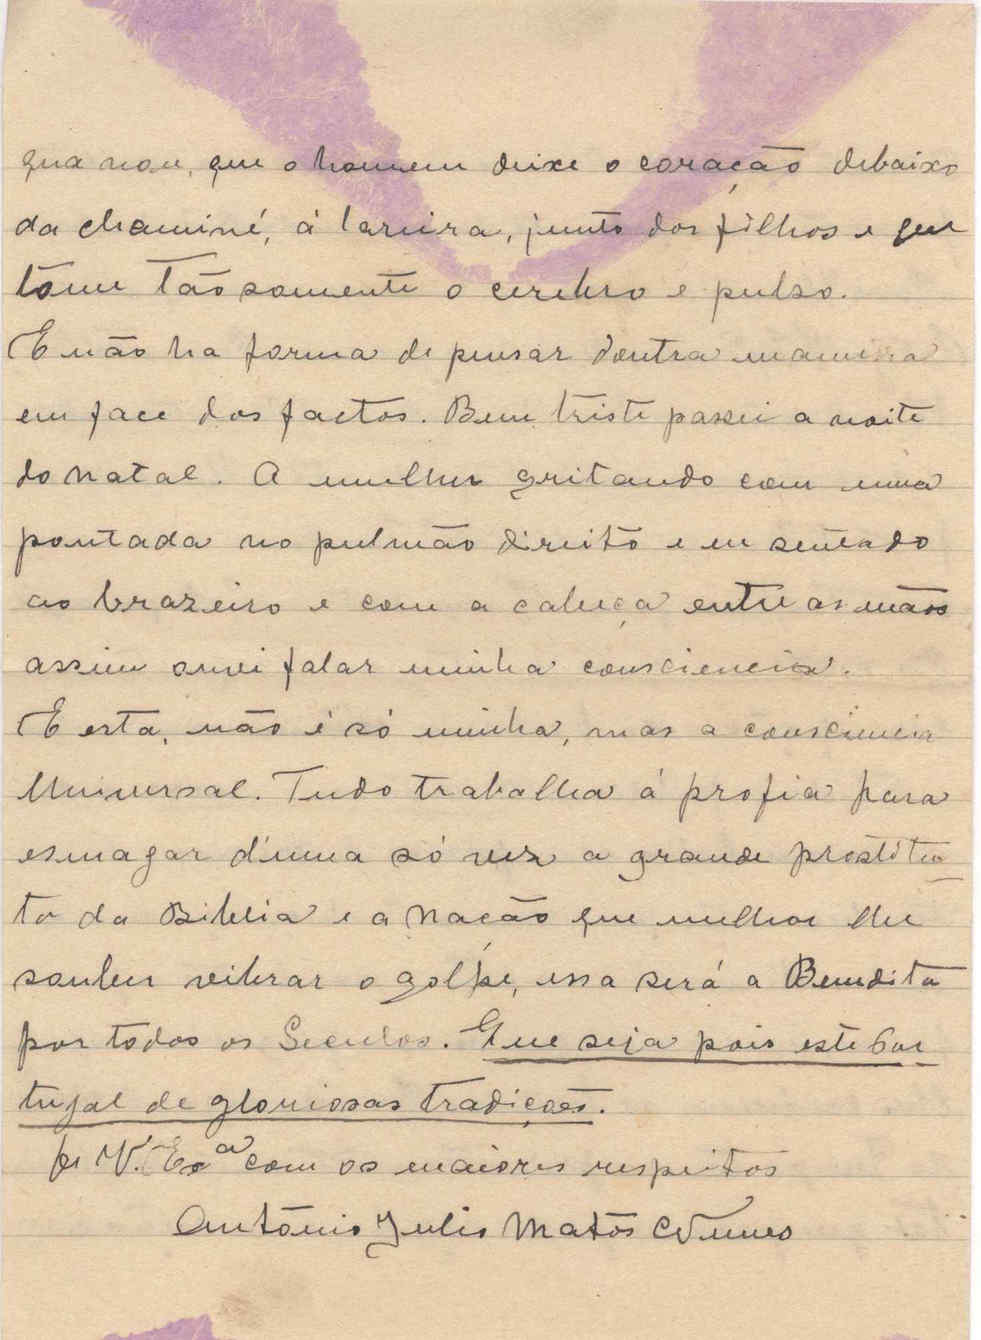 qua non, que o homem deixe o coração debaixo
da chaminé, á lareira, junto dos filhos e que
tôme tão somente o cerebro e pulso.
E não ha forma de pensar doutra maneira
em face dos factos. Bem triste passei a noite
do natal. A mulher gritando com uma
pontada no pulmão direito e eu sentado
ao brazeiro e com a cabeça entre as mãos
assim ouvi falar minha consciencia.
E esta, não é só minha, mas a consciencia
Universal. Tudo trabalha á profia para
esmagar d'uma só vez a grande prostitu
ta da Biblia e a Nação que melhor lhe
souber vibrar o golpe, essa será a Bemdita
por todos os Seculos. Que seja pois este Por
tugal de gloriosas tradiçoes.
De V. Exa com os maiores respeitos
António Julio Matos Nunes